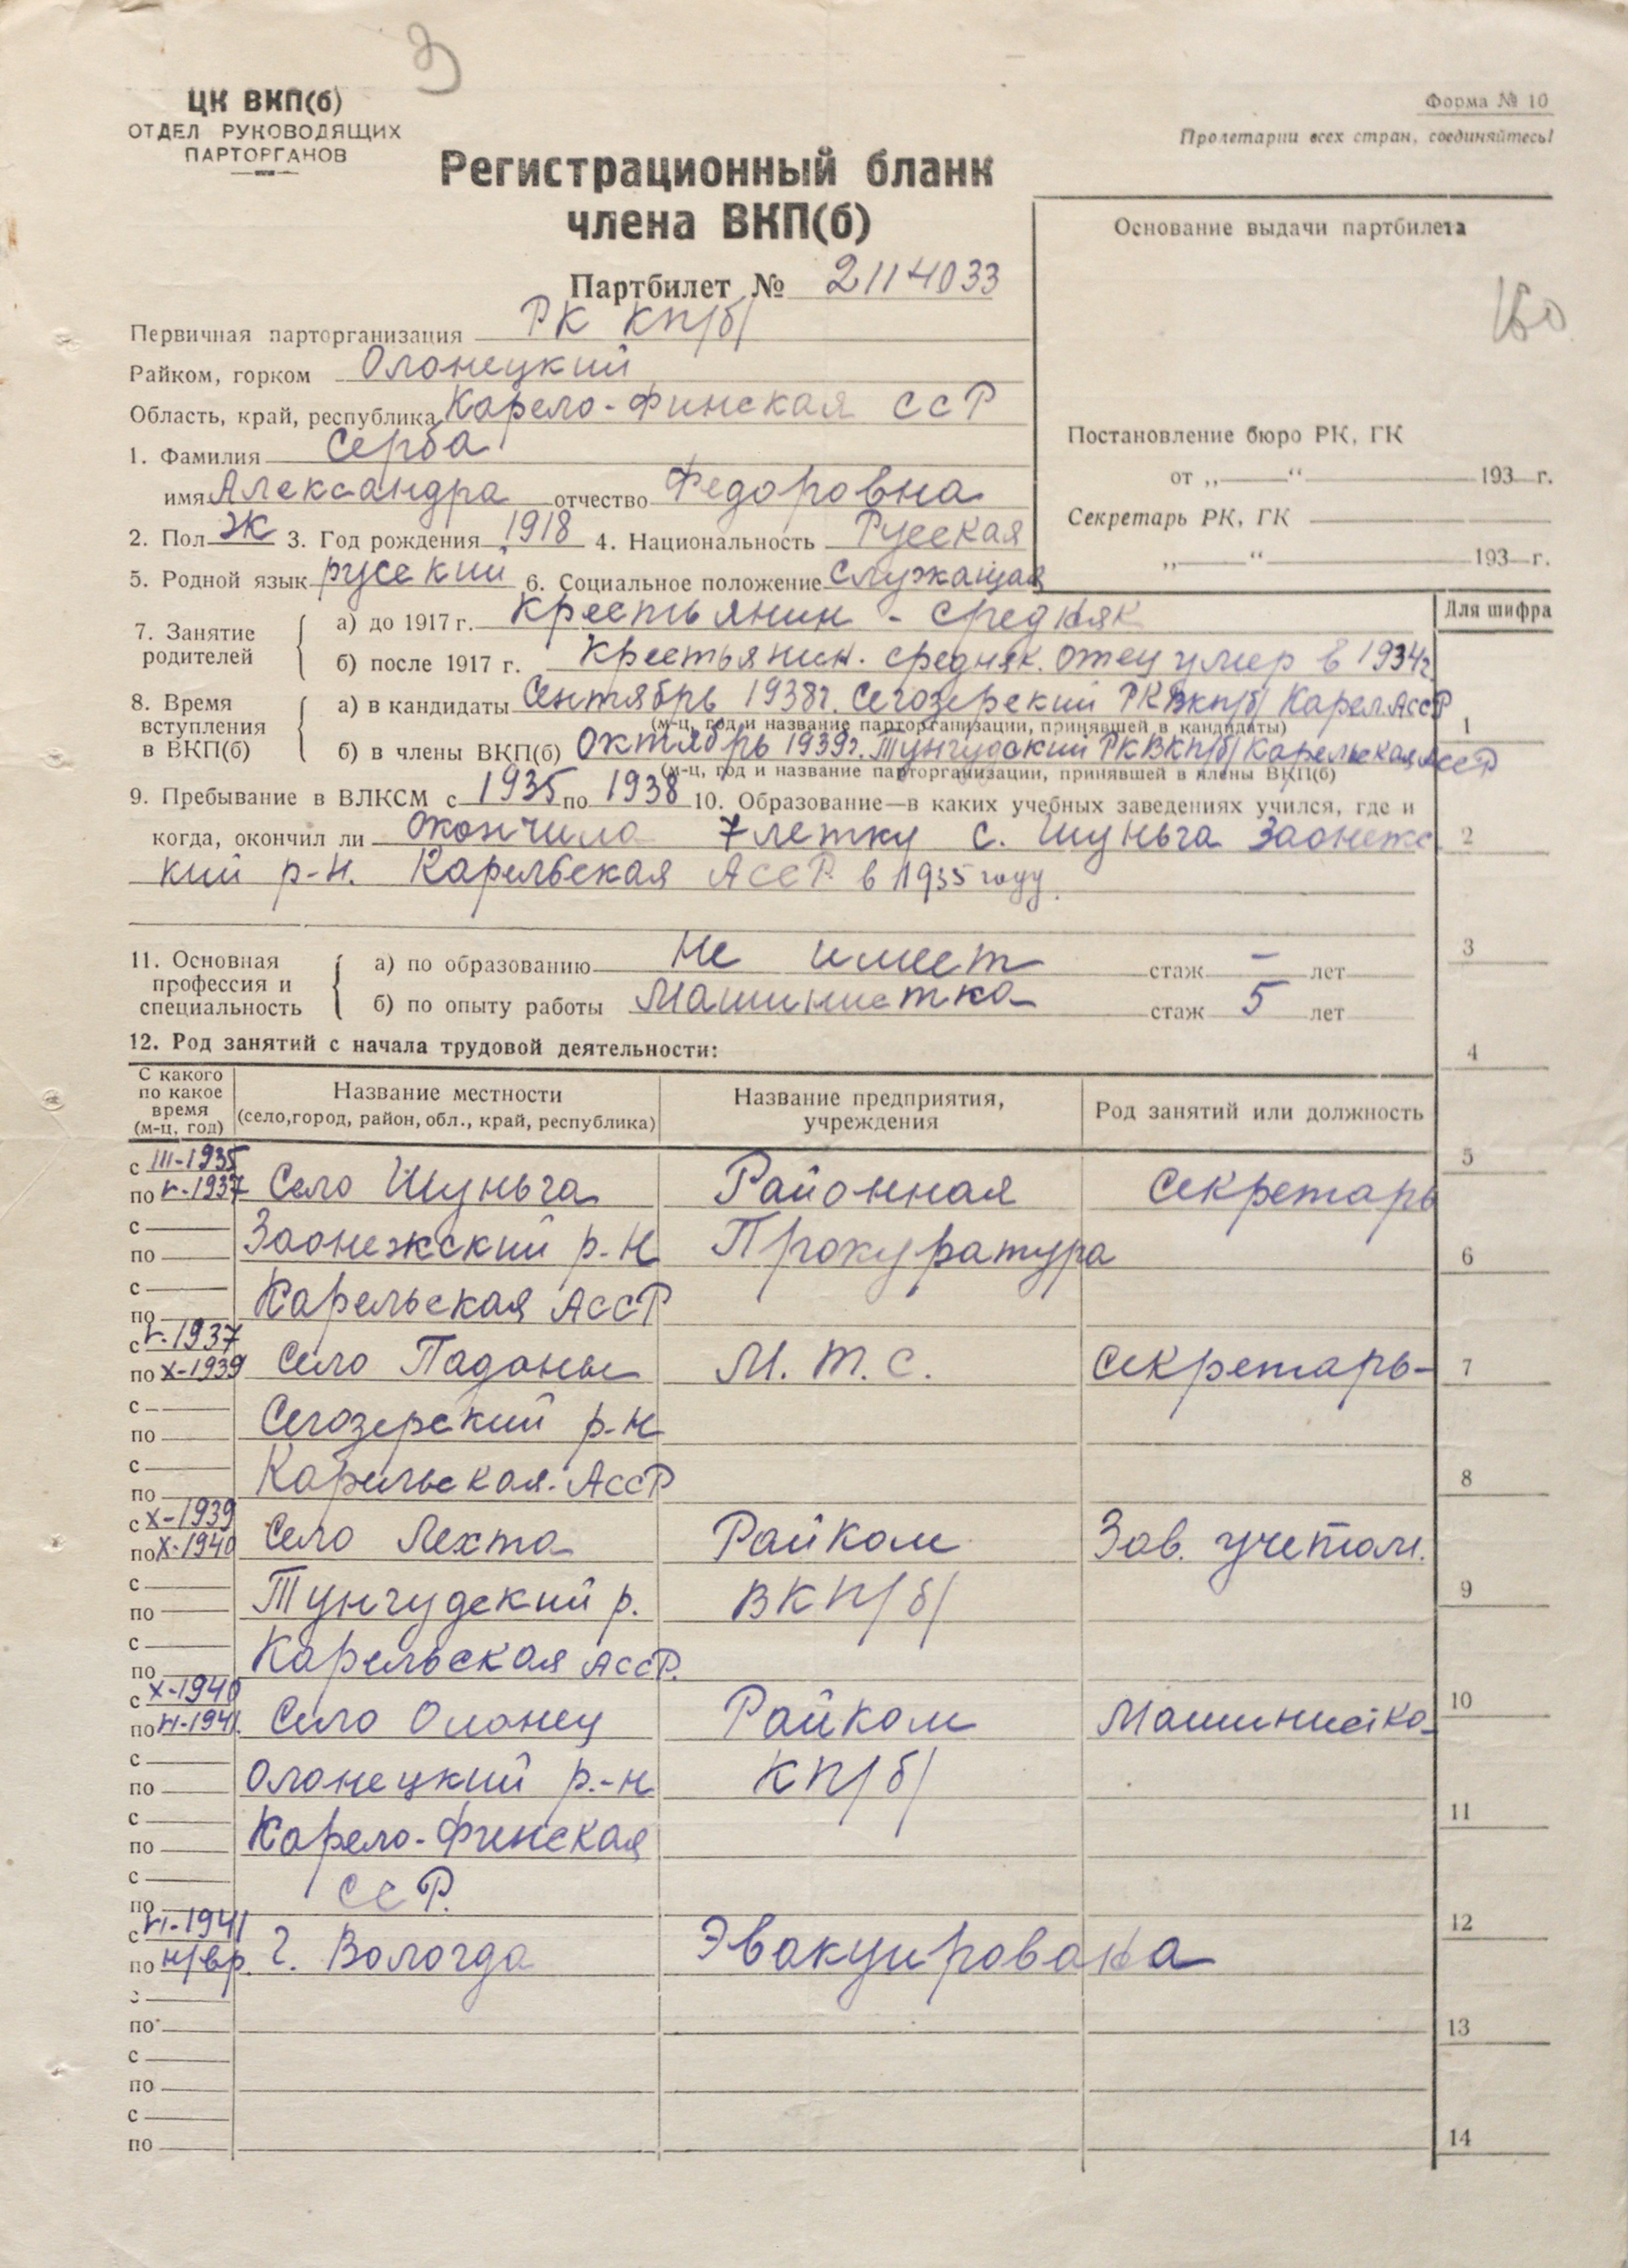 З
ЦК ВКП(б)
ОТДЕЛ РУКОВОДЯЩИХ
ПАРТОРГАНОВ
Форма № 10
Пролетарии всех стран, соединяйтесь!
Регистрационный бланк
члена ВКП(б)
Партбилет № 2114033
Основание выдачи партбилета
Первичная парторганизация РК КП/б/
Райком, горком Олонецкий
Область, край, республика Карело-Финская ССР
Постановление бюро РК, ГК
от „——“ 193 г.
Секретарь РК, ГК
„——“ 193 г.
1. Фамилия Серба
имя Александра отчество Федоровна
2. Пол Ж 3. Год рождения 1918 4. Национальность Русская
5. Родной язык русский 6. Социальное положение служащая
Для шифра
7. Занятие родителей
а) до 1917 г. Крестьянин - средняк
б) после 1917 г. Крестьянин. средняк. отец умер в 1934г
8. Время вступления в ВКП(б)
а) в кандидаты Сентябрь 1938г. Сегозерский РКВкп/б/ Карел.АссР
(м-ц, год и название парторганизации, принявшей в кандидаты)
1
б) в члены ВКП(б) Октябрь 1939г. Тунгудский РКВКп/б/ Карельская АссР
(м-ц, год и название парторганизации, принявшей в члены ВКП(б)
9. Пребывание в ВЛКСМ с 1935 по 1938 10. Образование—в каких учебных заведениях учился, где и
когда, окончил ли Окончила 7 летку с. Шуньга Заонежс
2
кий р-н. Карельская АССР в 1935 году.
3
11. Основная профессия и специальность
а) по образованию Не имеет стаж – лет
б) по опыту работы Машинистка стаж 5 лет
12. Род занятий с начала трудовой деятельности:
4
С какого по какое время (м-ц, год)
Название местности
(село,город, район, обл., край, республика)
Название предприятия, учреждения
Род занятий или должность
5
с III-1935
по V-1937 Село Шуньга Районная Секретарь
с
по Заонежский р-н Прокуратура
6
с
по Карельская АССР
с V-1937
по X-1939 Село Паданы М. Т. С. Секретарь
7
с
по Сегозерский р-н
с
по Карельская АссР
8
с X-1939
по X-1940 Село Лехта Райком Зав. учетом.
с
по Тунгудский р. ВКП/б/
9
с
по Карельская АссР.
с X-1940
по VI-1941. Село Олонец Райком Машинистка
10
с
по Олонецкий р-н КП/б/
с
по Карело-Финская
11
с
по ССР.
с VI-1941
по н/вр. г. Вологда Эвакуирована
12
с
по
13
с
по
с
по
14